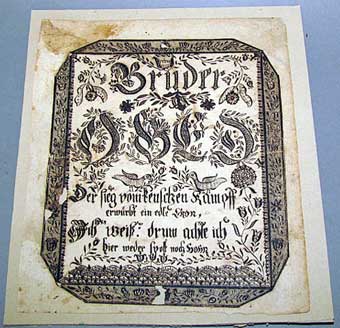 Brüder
OBED
Der sieg vom keuschen Kampff
erwürbt ein edle Chron,
Ich weiß: drum achte ich
hier weder spott noch Hohn